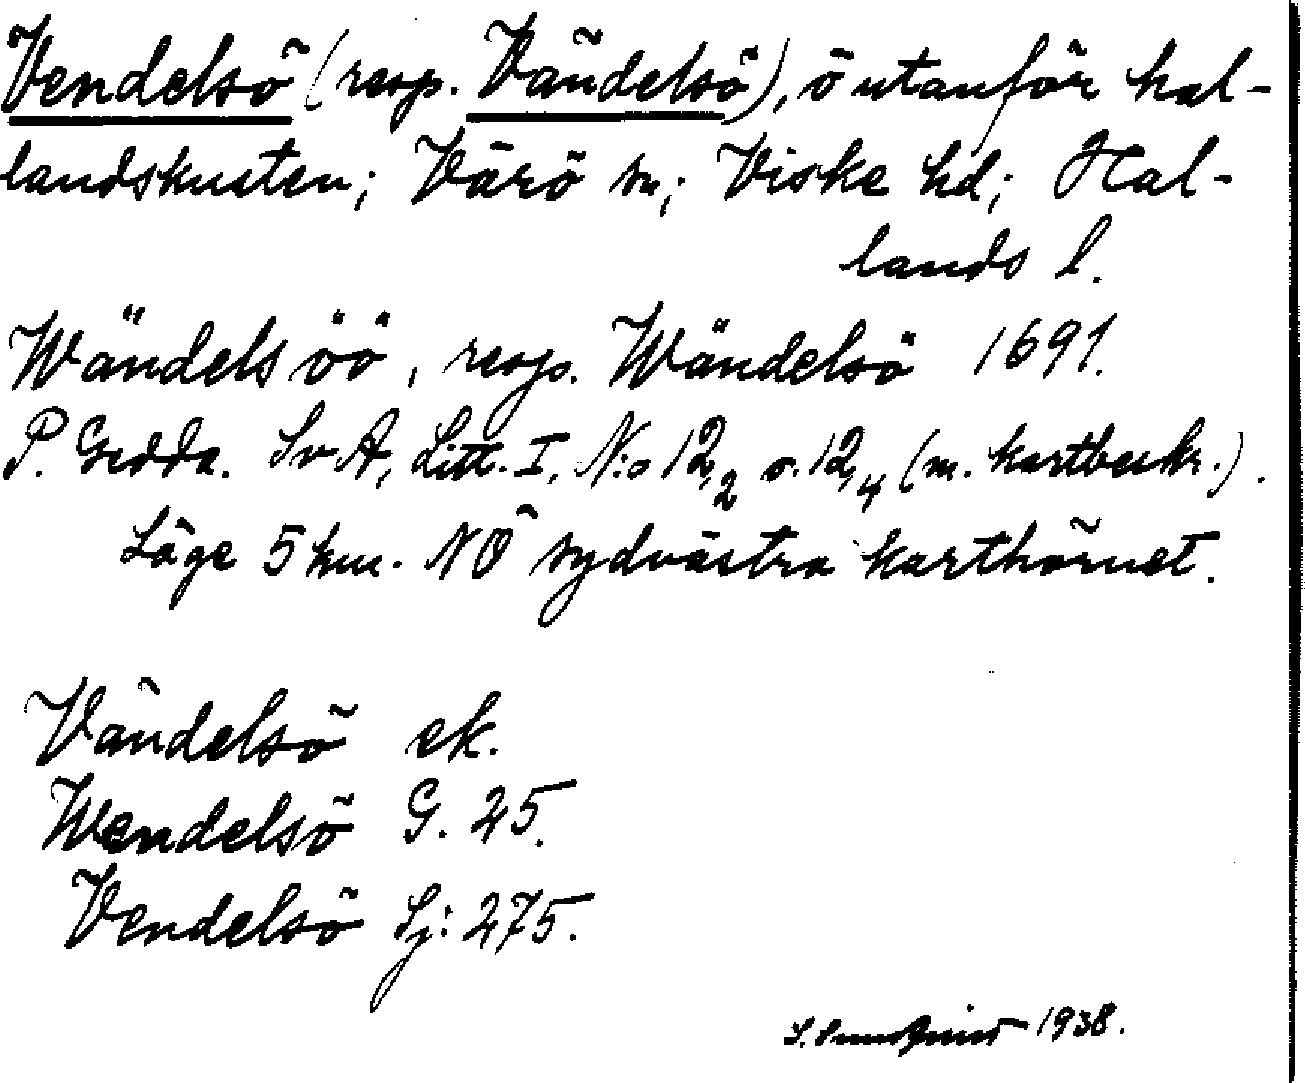 Vendelsö (resp. Vändelsö), ö utanför hal-
landskusten; Värö sn; Viske hd; Hal-
lands l.
Wändels öö, resp. Wändelsö 1691.
P. Gedda. SvA, Litt. I, N:o 12,2 o. 12,4 (m. kartbeskr.).
Läge 5 km. NÖ sydvästra karthörnet.
Vändelsö ek.
Wendelsö G. 25.
Vendelsö Sj: 275.
S. 1938.